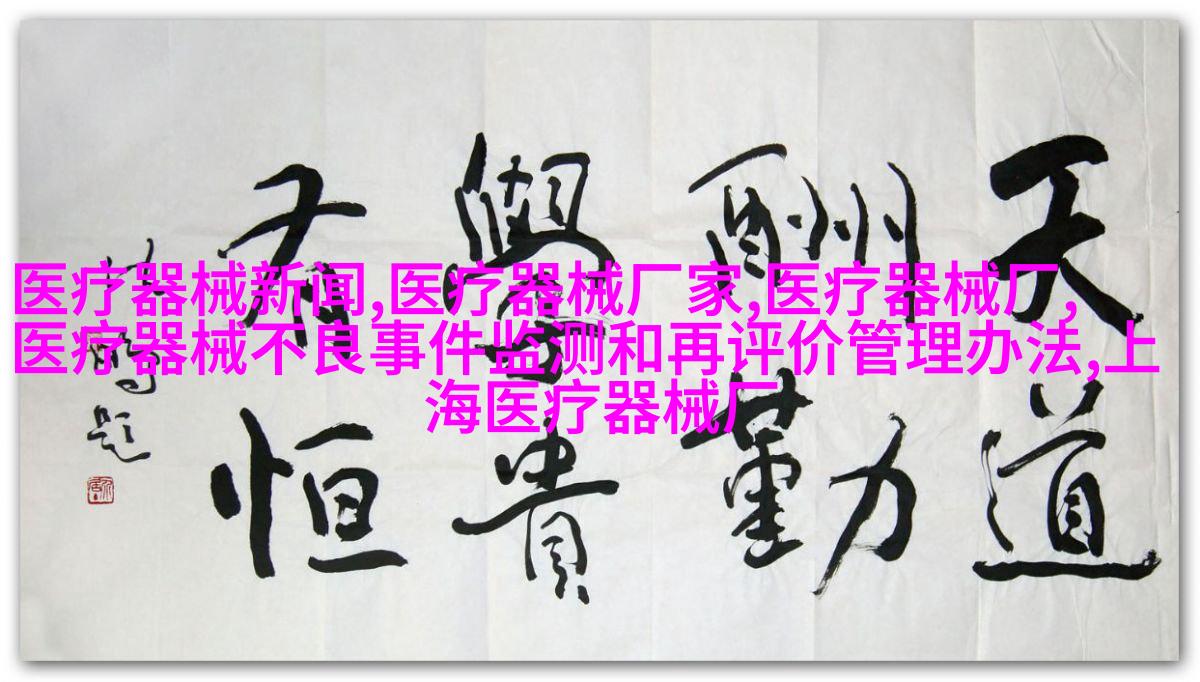 医疗器械新闻,医疗器械厂家,医疗器械厂,
医疗器械不良事件监测和再评价管理办法,上
海医疗器械厂
天道
酬勤
學貴
有恒
题